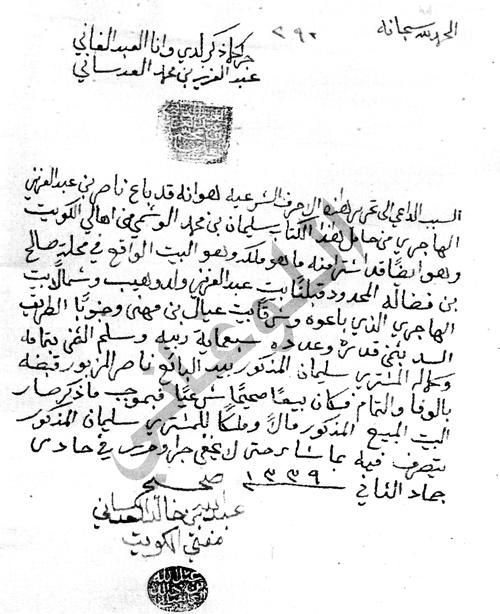 الحمد لله سبحانه
٢٩٢
جرا ما ذكر لدي وانا العبد الفاني
عبد العزيز بن محمد العدساني
السبب الداعي الى تحرير هذه الاحرف الشرعيه هو انه قد باع ناصر بن عبد العزيز
الهاجري من حامل هذا الكتاب سليمان بن محمد الوشمي من اهالي الكويت
وهو ايضًا قد اشترا منه ما هو ملكه وهو البيت الواقع في محلة صالح
بن فضاله المحدود قبلتًا بيت عبد العزيز ولد وهيب وشمالًا بيت
الهاجري الذي باعوه وشرقًا بيت عيال بن مهنى وجنوبًا الطريق
السد بثمن قدره وعدده سبعماية ربيه وسلم الثمن بتمامه
وكماله المشتري سليمان المذكور بيد البائع ناصر المزبور قبضه
بالوفا والتمام فكان بيعًا صحيحًا شرعيًا فبموجب ما ذكر صار
البيت المبيع المذكور مالًا وملكًا للمشتري سليمان المذكور
يتصرف فيه بما شاء حتى لا يخفى جرا وحرر في حادى
جماد الثاني ١٣٣٩
صحيح
عبد الله بن خالد العدساني
مفتي الكويت
عبد الله
بن خالد